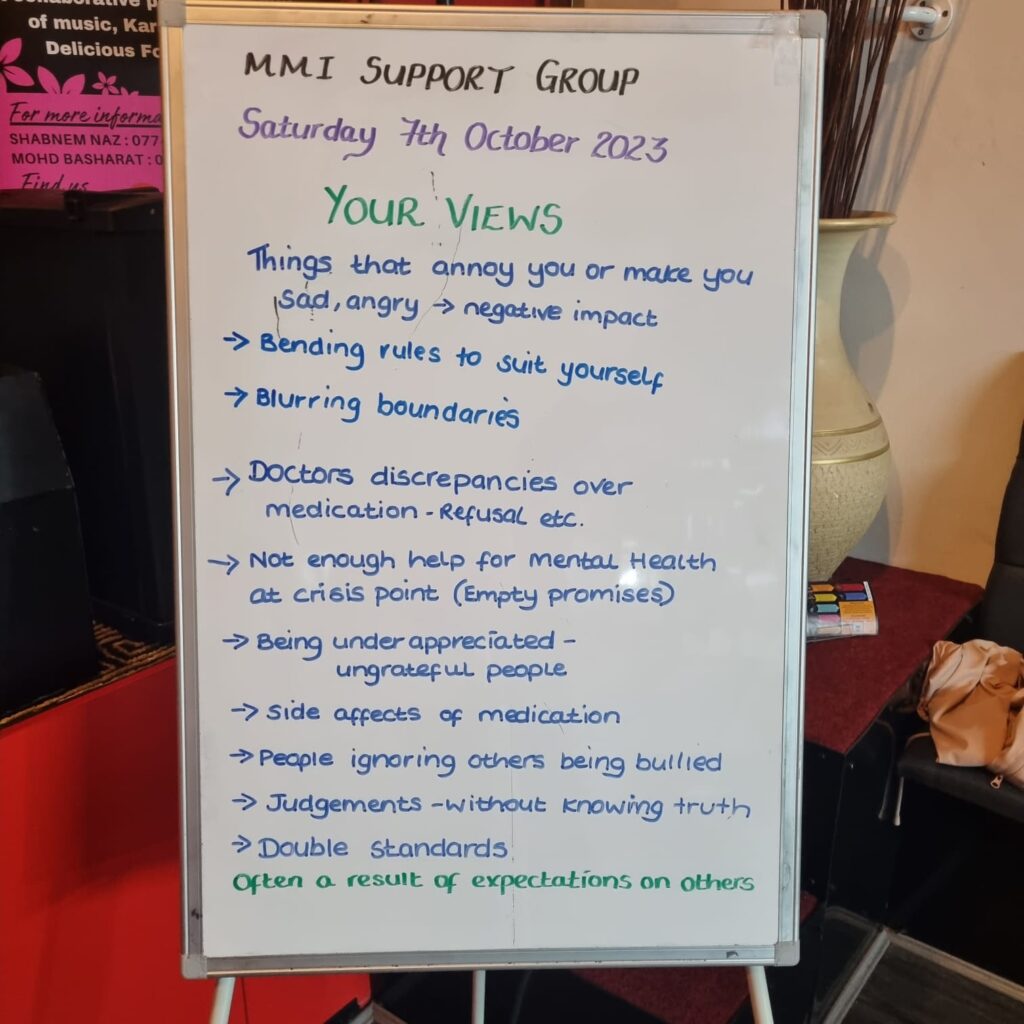 of music, Kar
Delicious Fo
For more informa
SHABNEM NAZ : 077
MOHD BASHARAT : 0
Find us
MMI SUPPORT GROUP
Saturday 7th October 2023
YOUR VIEWS
Things that annoy you or make you
sad, angry → negative impact
→ Bending rules to suit yourself
→ Blurring boundaries
→ Doctors discrepancies over
medication - Refusal etc.
→ Not enough help for Mental Health
at crisis point (Empty promises)
→ Being under appreciated -
ungrateful people
→ Side affects of medication
→ People ignoring others being bullied
→ Judgements - without knowing truth
→ Double standards
Often a result of expectations on others